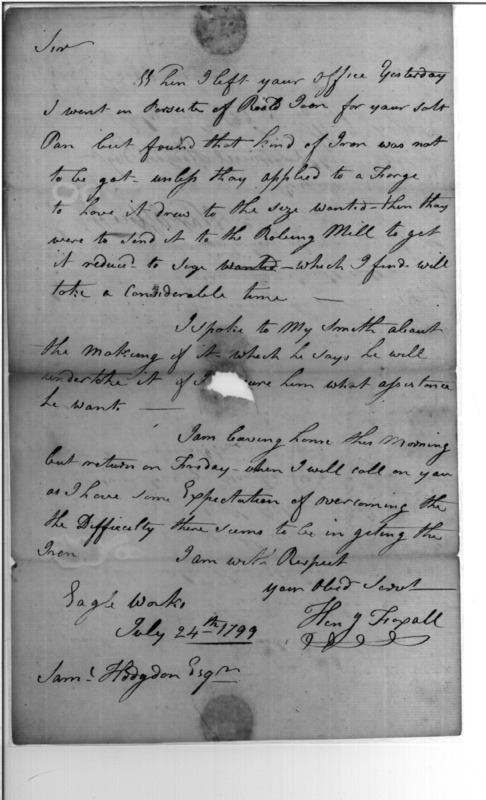 Sir
When I left your office Yesterday
I went in Persute of Roled Iron for your salt
Pan but found that kind of Iron was not
to be got - unless thay applied to a Forge
to have it drew to the size wanted - then thay
were to send it to the Roleing Mill to get
it reduced to size wanted - which I find will
take a Considerable time —
I spoke to My Smith about
the making of it - which he says he will
undertake it if I
him what assistance
he wants —
I am leaving home this Morning
but return on Friday - when I will call on you
as I have some Expectation of overcoming the
the Difficulty there seems to be in geting the
Iron
I am with Respect
your Obed Servt
Eagle Works
July 24th 1799
Heny Foxall
Saml Hodgdon Esqr